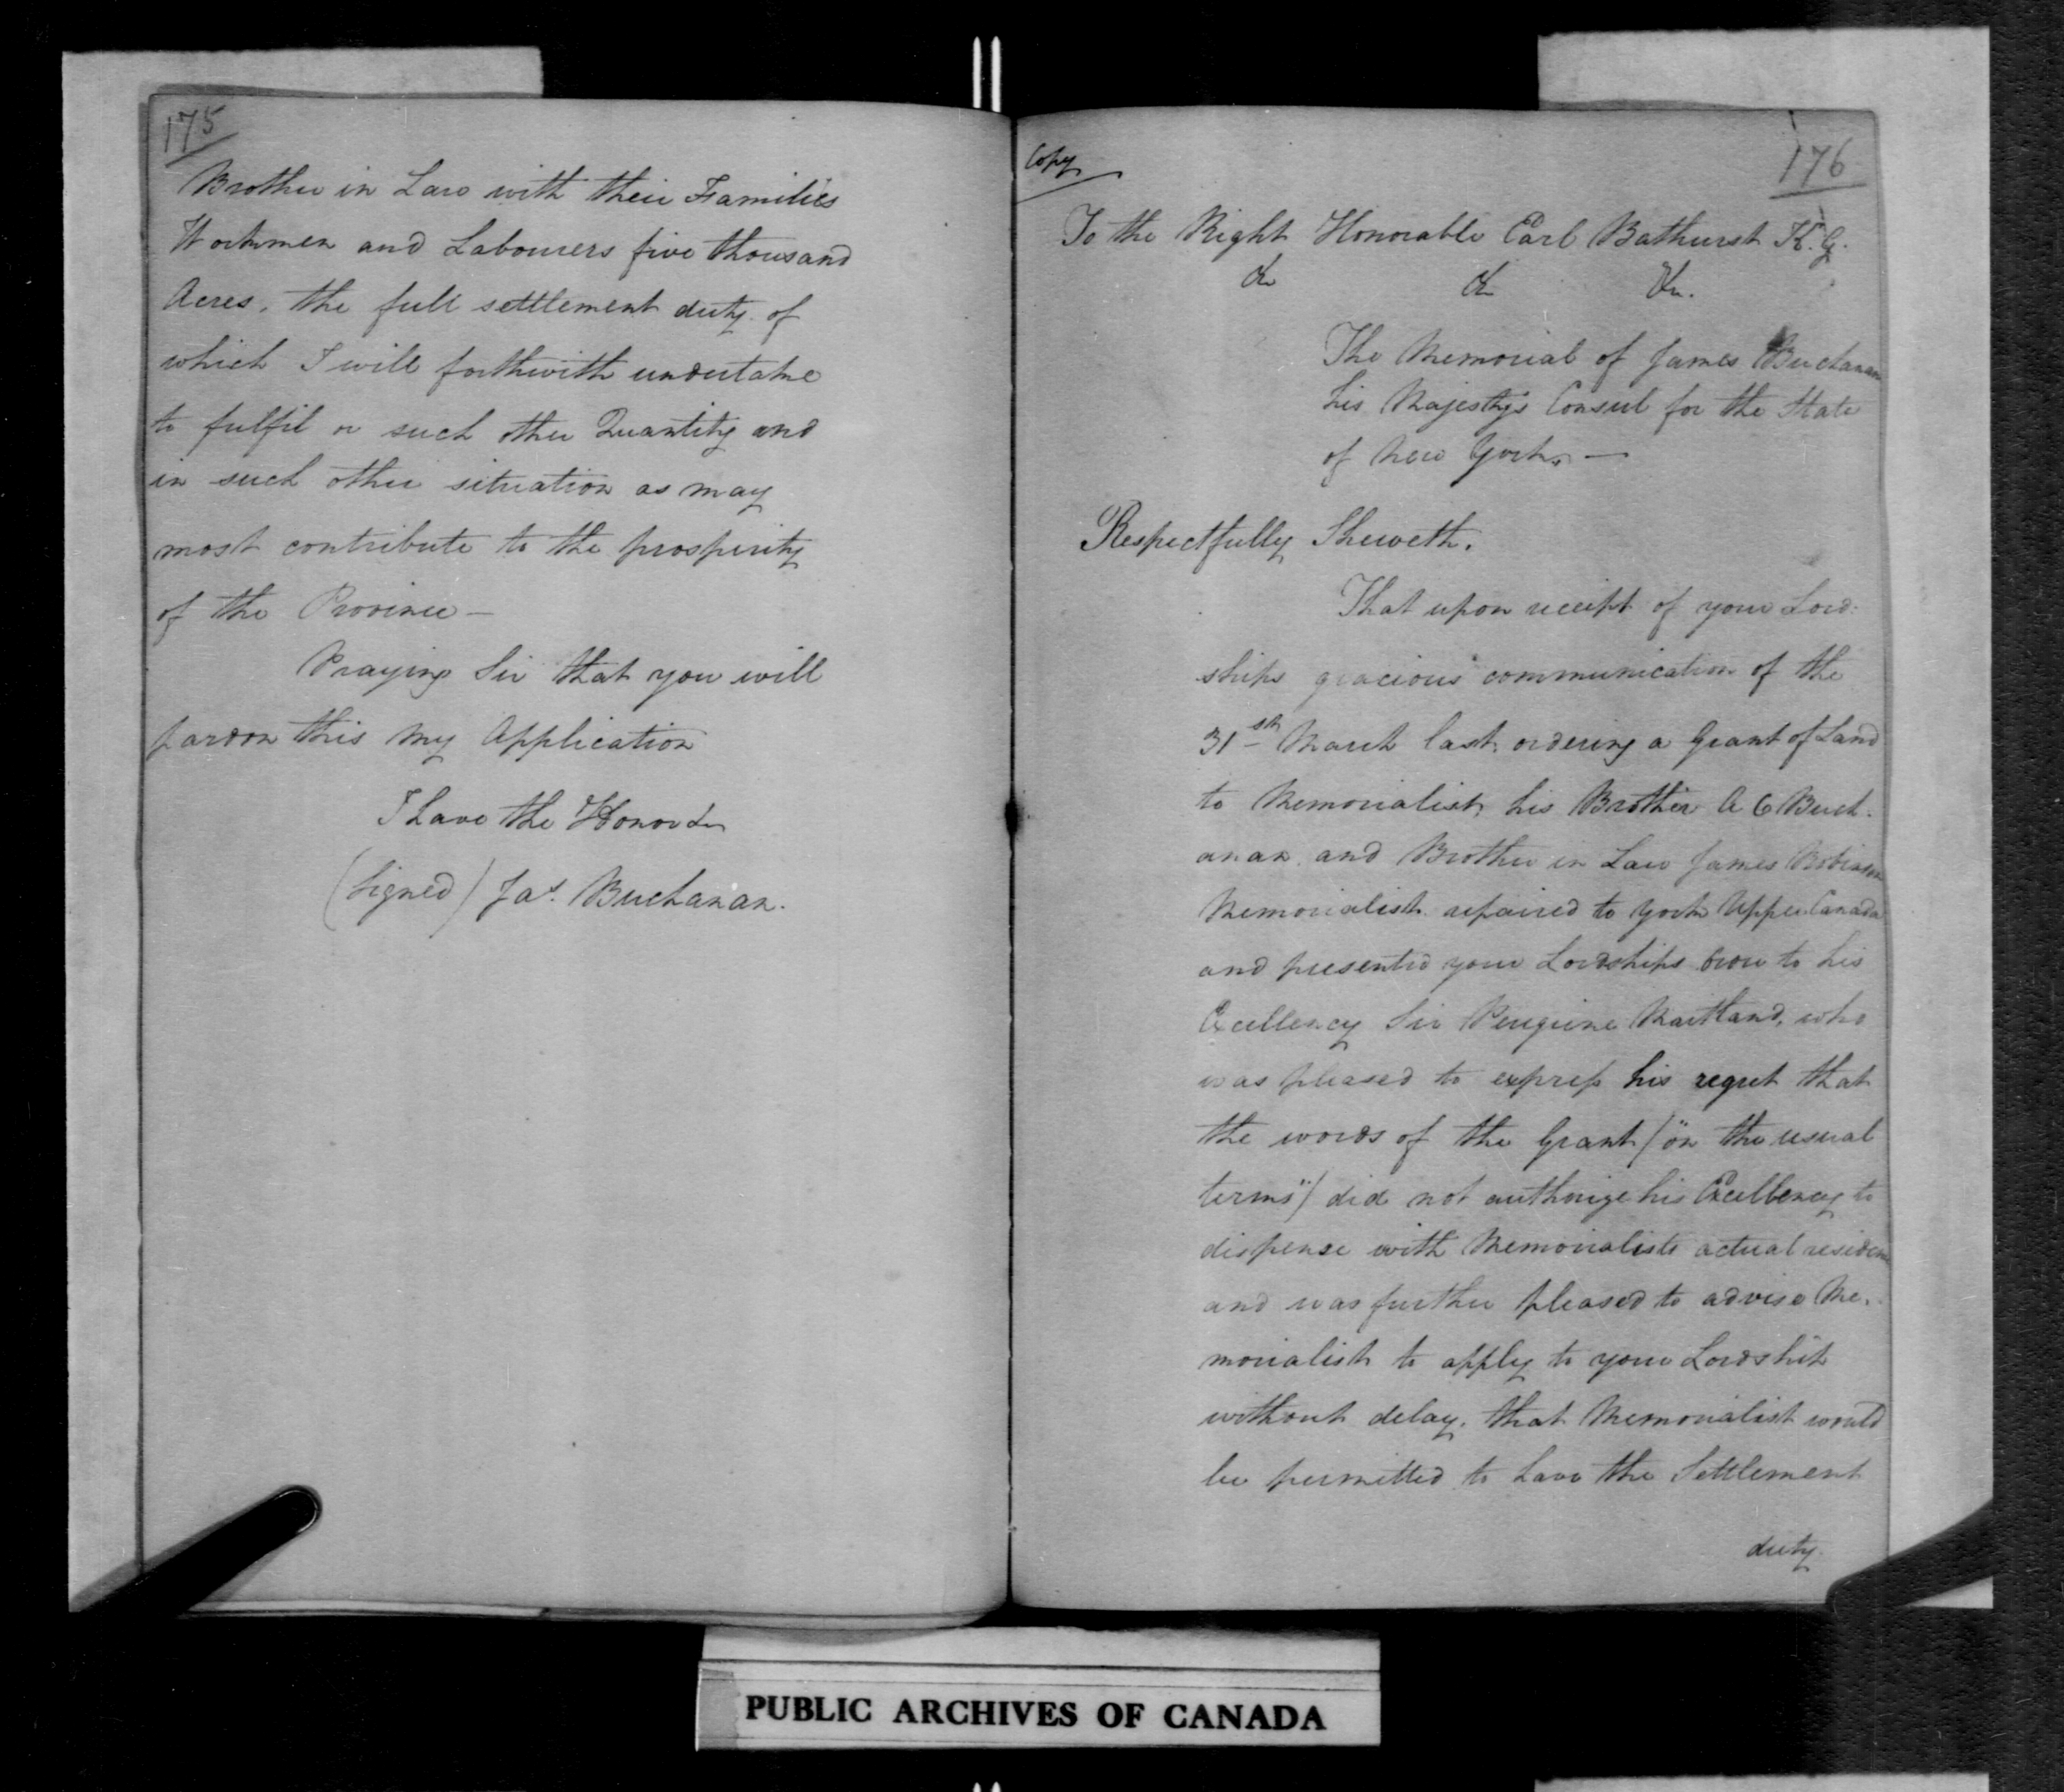 175
Brother in Law with their Families
Workmen and Labourers five thousand
Acres, the full settlement duty of
which I will forthwith undertake
to fulfil or such other Quantity and
in such other situation as may
most contribute to the prosperity
of the Province —
Praying Sir that you will
pardon this my Application
I have the Honor &c
(Signed) Jas. Buchanan.
Copy
176
To the Right Honorable Earl Bathurst K.G.
&c &c &c.
The Memorial of James Buchanan
his Majesty's Consul for the State
of New York. —
Respectfully Sheweth.
That upon receipt of your Lord-
ships gracious communication of the
31st March last, ordering a Grant of Land
to Memorialist, his Brother A C Buch-
anan and Brother in Law James Robinson
Memorialist repaired to York Upper Canada
and presented your Lordships to his
Excellency Sir Peregrine Maitland, who
was pleased to express his regret that
the words of the Grant ("on the usual
terms") did not authorize his Excellency to
dispense with Memorialists actual residence
and was further pleased to advise Me-
morialist to apply to your Lordship
without delay, that Memorialist would
be permitted to have the Settlement
duty
PUBLIC ARCHIVES OF CANADA